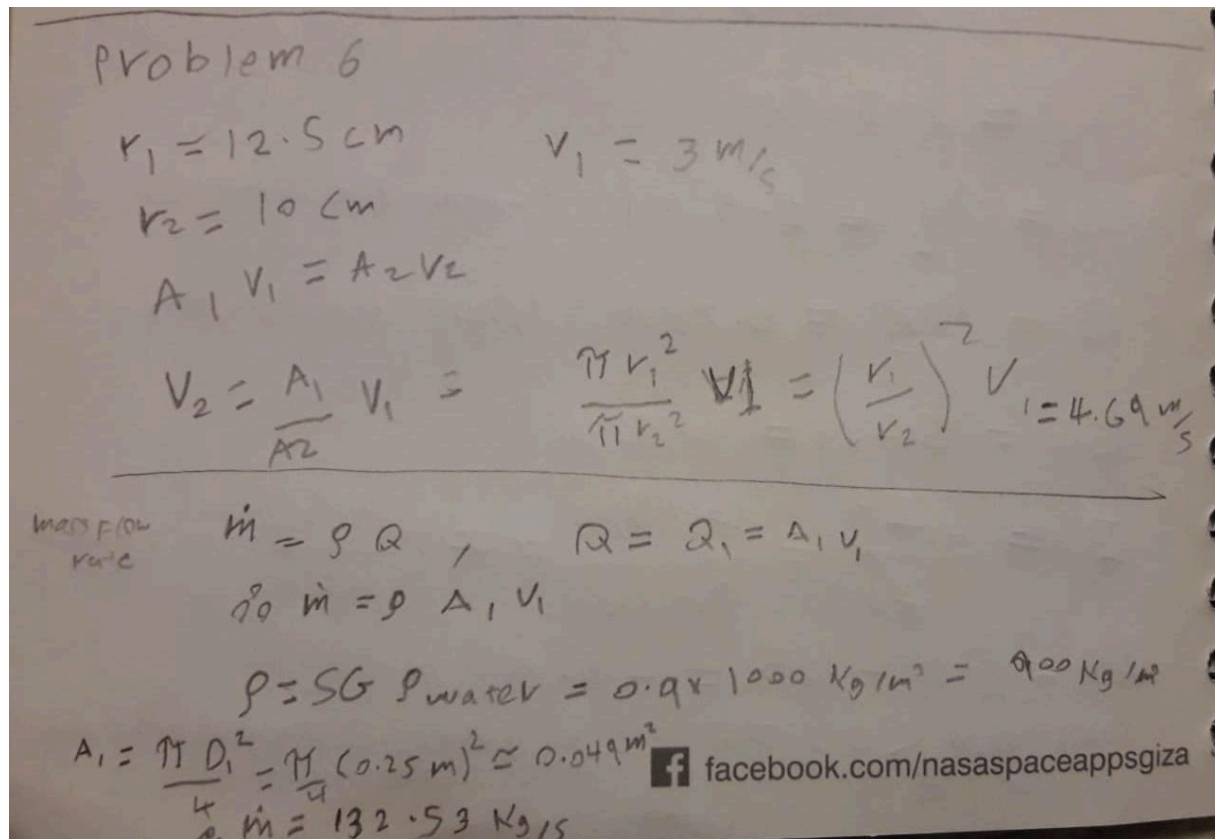 Problem 6
r₁ = 12.5 cm V₁ = 3 m/s
r₂ = 10 cm
A₁ V₁ = A₂ V₂
V₂ = A₁/A₂ V₁ = πr₁²/πr₂² V1 = (r₁/r₂)² V₁ = 4.69 m/s
mass flow rate
ṁ = ρ Q , Q = Q₁ = A₁ V₁
∴ ṁ = ρ A₁ V₁
ρ = SG ρwater = 0.9x 1000 Kg/m³ = 900 Kg/m³
A₁ = πD₁²/4 = π/4 (0.25 m)² ≃ 0.049 m²
facebook.com/nasaspaceappsgiza
ṁ = 132.53 Kg/s